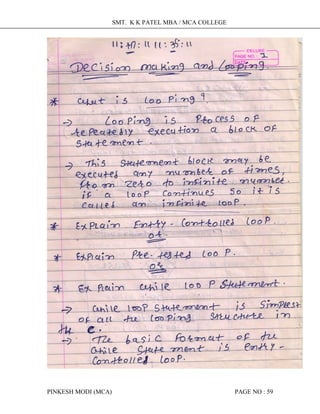 SMT. K K PATEL MBA / MCA COLLEGE
PAGE NO. 1
Decision making and Looping.
* What is Looping?
-> Looping is Process of
repeatedly execution a block of
Statement.
-> This Statement block may be
executed any number of times,
from zero to infinite number.
if a loop continues so it is
called an infinite loop.
* Explain Entry-Controlled Loop.
or
* Explain Pre-tested Loop.
or
* Explain while loop Statement.
-> While loop Statement is Simplest
of all the looping Structure in
the C.
-> The basic Format of the
While Statement is entry-
Controlled Loop.
PINKESH MODI (MCA) PAGE NO : 59